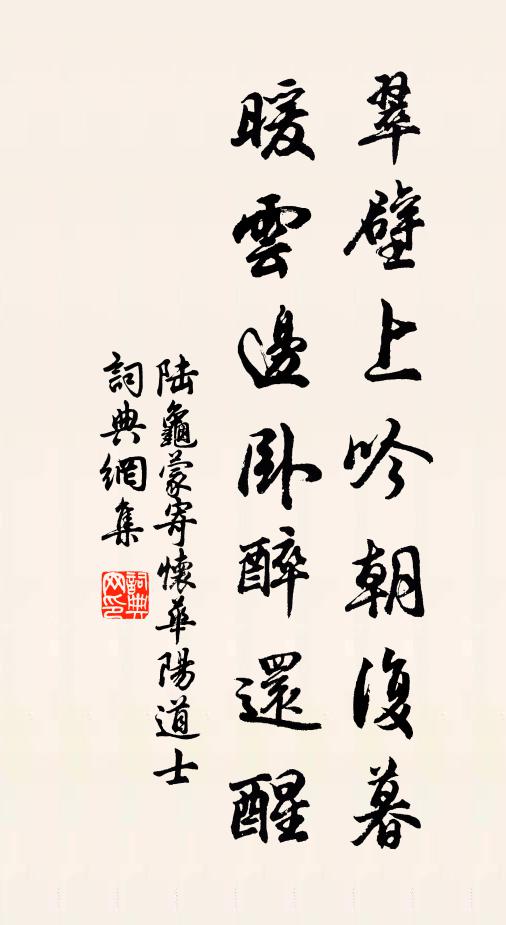 翠壁上吟朝復暮
暖雲邊臥醉還醒
陸龜蒙寄懷華陽道士
詞典網集
詞典網印